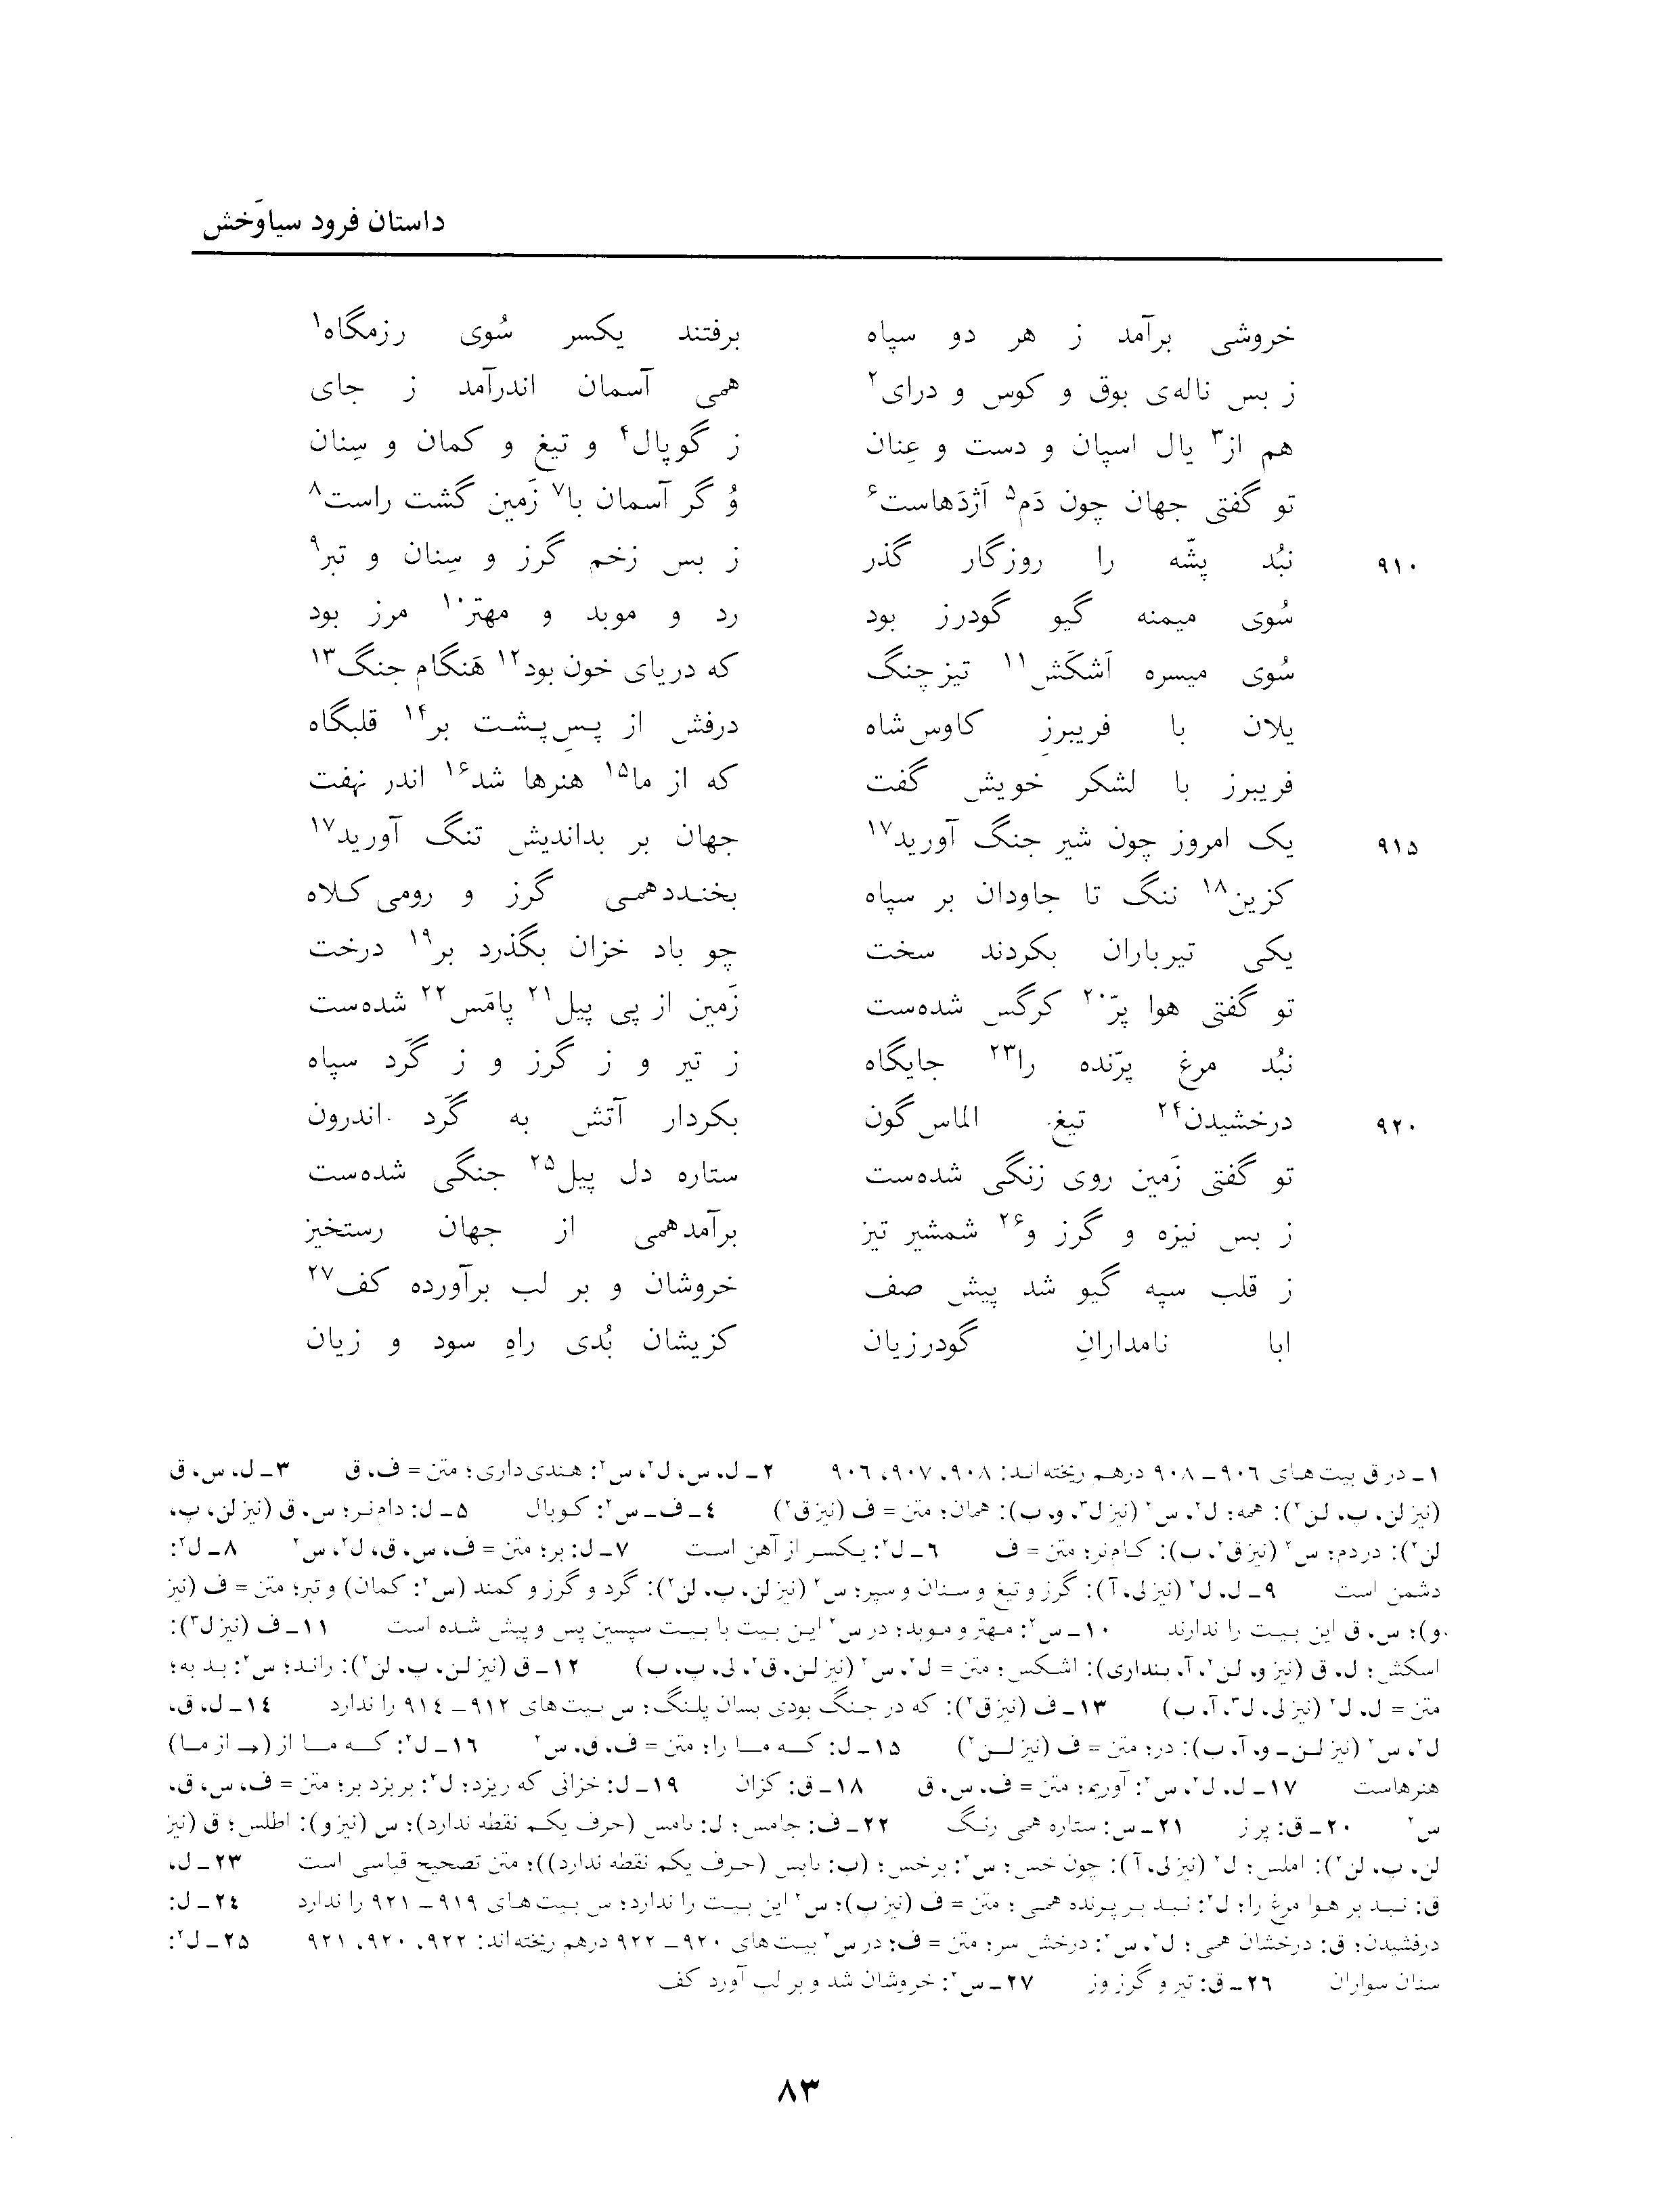 داستان فرود سیاوَخش
خروشی برآمد ز هر دو سپاه برفتند یکسر سُوی رزمگاه۱
ز بس ناله‌ی بوق و کوس و درای۲ همی آسمان اندرآمد ز جای
هم از۳ یال اسپان و دست و عِنان ز گوپال۴ و تیغ و کمان و سِنان
تو گفتی جهان چون دَم۵ اَژدَهاست۶ وُ گر آسمان با۷ زَمین گشت راست۸
۹۱۰ نبُد پشّه را روزگار گذر ز بس زخم گرز و سِنان و تبر۹
سُوی میمنه گیو گودرز بود رد و موبد و مهتر۱۰ مرز بود
سُوی میسره اَشکَش۱۱ تیزچنگ که دریای خون بود۱۲ هَنگامِ جنگ۱۳
یلان با فریبرزِ کاوس‌شاه درفش از پسِ‌پشت بر۱۴ قلبگاه
فریبرز با لشکر خویش گفت که از ما۱۵ هنرها شد۱۶ اندر نهفت
۹۱۵ یک امروز چون شیر جنگ آورید۱۷ جهان بر بداندیش تنگ آورید۱۷
کزین۱۸ ننگ تا جاودان بر سپاه بخندد همی گرز و رومی کلاه
یکی تیرباران بکردند سخت چو باد خزان بگذرد بر۱۹ درخت
تو گفتی هوا پرّ۲۰ کرگس شده‌ست زَمین از پی پیل۲۱ پامَس۲۲ شده‌ست
نبُد مرغ پرّنده را۲۳ جایگاه ز تیر و ز گرز و ز گَرد سپاه
۹۲۰ درخشیدن۲۴ تیغ الماس‌گون بکردار آتش به گَرد اندرون
تو گفتی زَمین روی زنگی شده‌ست ستاره دل پیل۲۵ جنگی شده‌ست
ز بس نیزه و گرز و۲۶ شمشیر تیز برآمد همی از جهان رستخیز
ز قلب سپه گیو شد پیش صف خروشان و بر لب برآورده کف۲۷
ابا نامدارانِ گودرزیان کزیشان بُدی راهِ سود و زیان
۱ـ در ق بیت‌های ۹۰۶ـ۹۰۸ درهم ریخته‌اند: ۹۰۸، ۹۰۷، ۹۰۶ ۲ـ ل، س، ل۲، س۲: هندی درای؛ متن = ف، ق ۳ـ ل، س، ق
(نیز لن، پ، لن۲): همه؛ ل۲، س۲ (نیز ل۳، و، ب): همان؛ متن = ف (نیز ق۲) ٤ـ ف ـ س۲: کوبال ۵ـ ل: دام نر؛ س، ق (نیز لن، پ،
لن۲): در دم؛ س۲ (نیز ق۲، ب): کام نر؛ متن = ف ٦ـ ل۲: یکسر از آهن است ۷ـ ل: بر؛ متن = ف، س، ق، ل۲، س۲ ۸ـ ل۲:
دشمن است ۹ـ ل، ل۲ (نیز لی، آ): گرز و تیغ و سنان و سپر؛ س۲ (نیز لن، پ، لن۲): گرد و گرز و کمند (س۲: کمان) و تبر؛ متن = ف (نیز
و)؛ س، ق این بیت را ندارند ۱۰ـ س۲: مهتر و موبد؛ در س۲ این بیت با بیت سپسین پس و پیش شده است ۱۱ـ ف (نیز ل۳):
اسکش؛ ل، ق (نیز و، لن۲، آ، بنداری): اشکس؛ متن = ل۲، س۲ (نیز لن، ق۲، لی، پ، ب) ۱۲ـ ق (نیز لن، پ، لن۲): راند؛ س۲: بد به؛
متن = ل، ل۲ (نیز لی، ل۳، آ، ب) ۱۳ـ ف (نیز ق۲): که در جنگ بودی بسان پلنگ؛ س بیت‌های ۹۱۲ـ۹۱٤ را ندارد ۱٤ـ ل، ق،
ل۲، س۲ (نیز لن ـ و، آ، ب): در؛ متن = ف (نیز لن۲) ۱۵ـ ل: که ما را؛ متن = ف، ق، س۲ ۱٦ـ ل۲: که ما از (← از ما)
هنرهاست ۱۷ـ ل، ل۲، س۲: آوریم؛ متن = ف، س، ق ۱۸ـ ق: کزان ۱۹ـ ل: خزانی که ریزد؛ ل۲: بریزد بر؛ متن = ف، س، ق،
س۲ ۲۰ـ ق: پر ز ۲۱ـ س: ستاره همی رنگ ۲۲ـ ف: جامس؛ ل: ٮامس (حرف یکم نقطه ندارد)؛ س (نیز و): اطلس؛ ق (نیز
لن، پ، لن۲): املس؛ ل۲ (نیز لی، آ): چون خس؛ س۲: برخس؛ (ب: ٮابس (حرف یکم نقطه ندارد))؛ متن تصحیح قیاسی است ۲۳ـ ل،
ق: نبد بر هوا مرغ را؛ ل۲: نبد بر پرنده همی؛ متن = ف (نیز پ)؛ س۲ این بیت را ندارد؛ س بیت‌های ۹۱۹ـ۹۲۱ را ندارد ۲٤ـ ل:
درفشیدن؛ ق: درخشان همی؛ ل۲، س۲: درخش سر؛ متن = ف؛ در س۲ بیت‌های ۹۲۰ـ۹۲۲ درهم ریخته‌اند: ۹۲۲، ۹۲۰، ۹۲۱ ۲۵ـ ل۲:
سنان سواران ۲٦ـ ق: تیر و گرز وز ۲۷ـ س۲: خروشان شد و بر لب آورد کف
۸۳